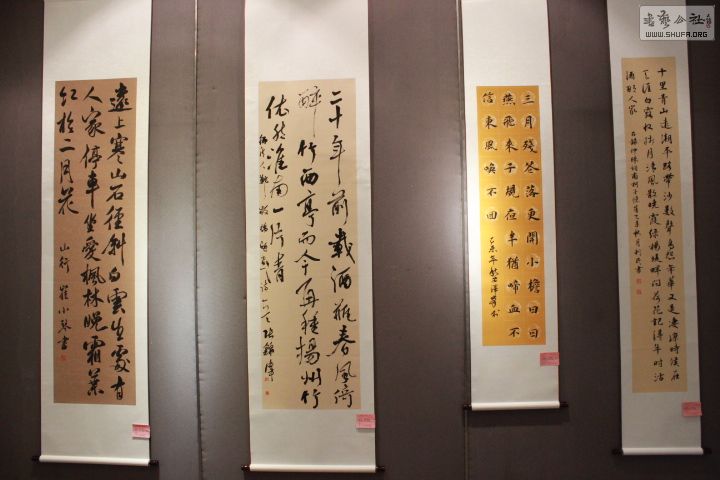 書藝公社
WWW.SHUFA.ORG
遠上寒山石徑斜白雲生處有
人家停車坐愛楓林晚霜葉
紅於二月花
山行 崔小琴書
二十年前載酒瓶春風倚
醉竹西亭而今再種揚州竹
依然淮南一片青
三月殘花落更開小檐日日
燕飛來子規夜半猶啼血不
信東風喚不回
乙未年
十里青山遠潮平路帶沙數聲鳥怨年華又是凄涼時候在
天涯白露收殘月清風散曉霞綠楊堤畔問荷花記得年時沽
酒那人家
右錄仲殊詞南柯子憶舊乙未秋月利民書